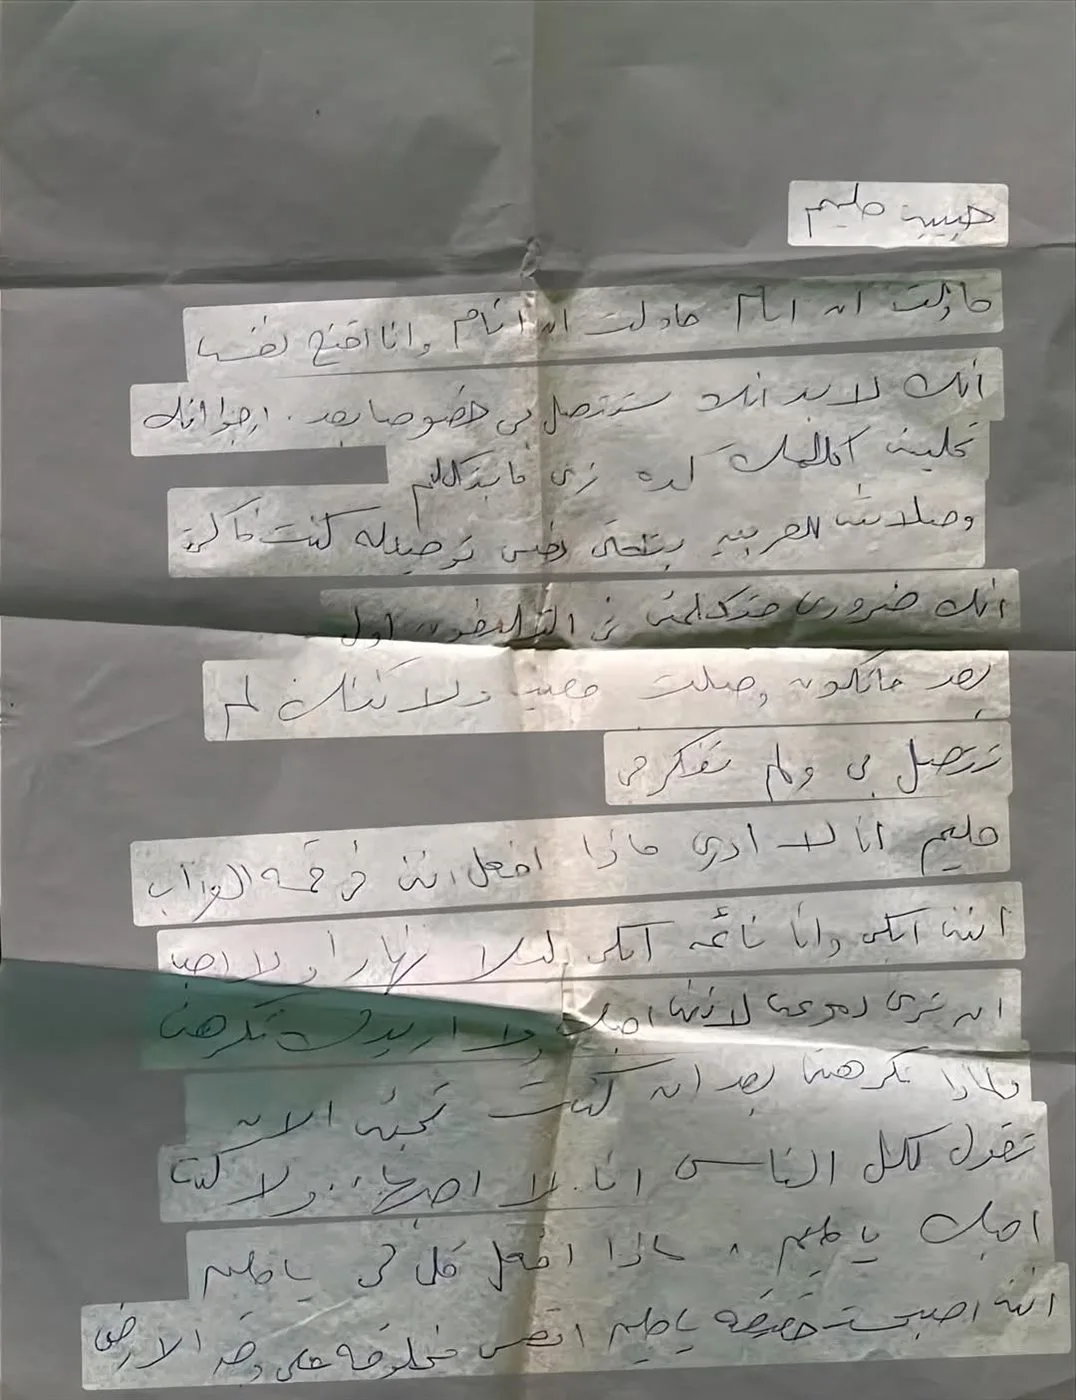 حبيبي حليم
حاولت ان انام حاولت ان انام وانا اقنع نفسي
انك لابد انك ستتصل بي خصوصا بعد . ارجوا انك
تخليني اكلمك كده زي ما بتكلم
وصلاش العربيه بتحتى نفس توصيله كنت فاكره
انك ضروري حتكلمني في التليفون اول
بعد ماتكون وصلت مصر ولاكنك لم
تتصل بي ولم تفكر في
حليم انا لا ادري ماذا افعل انني في قمه العذاب
انني ابكي وانا نائمه ابكي ليلا نهارا ولا احب
ان ترى دموعي لانني احبك ولا اريدك تكرهني
ولماذا تكرهني بعد ان كنت تحبني الان
تقول لكل الناس انا لا احبها . . ولا كنت
احبك يا حليم ، ماذا افعل قل لي يا حليم
انني اصبحت حقيقه يا حليم اتعس مخلوقه على وجه الارض